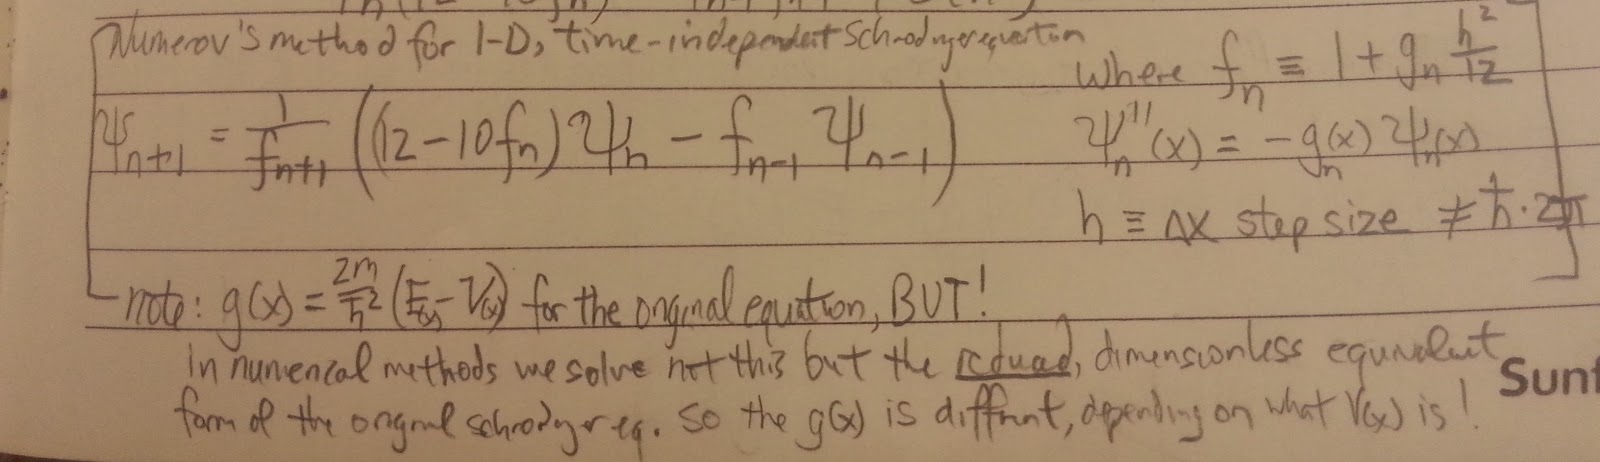 Numerov's method for 1-D, time-independent Schrodinger equation
where f_n ≡ 1 + g_n h²/12
ψ_{n+1} = 1/f_{n+1} ((12-10f_n) ψ_n - f_{n-1} ψ_{n-1})
ψ_n''(x) = -g_n(x) ψ_n(x)
h ≡ Δx step size ≠ ħ·2π
- note: g(x) = 2m/ħ² (E(x) - V(x)) for the original equation, BUT!
in numerical methods we solve not this but the reduced, dimensionless equivalent
form of the original schrodyer eq. so the g(x) is diffrent, depending on what V(x) is!
Sunf